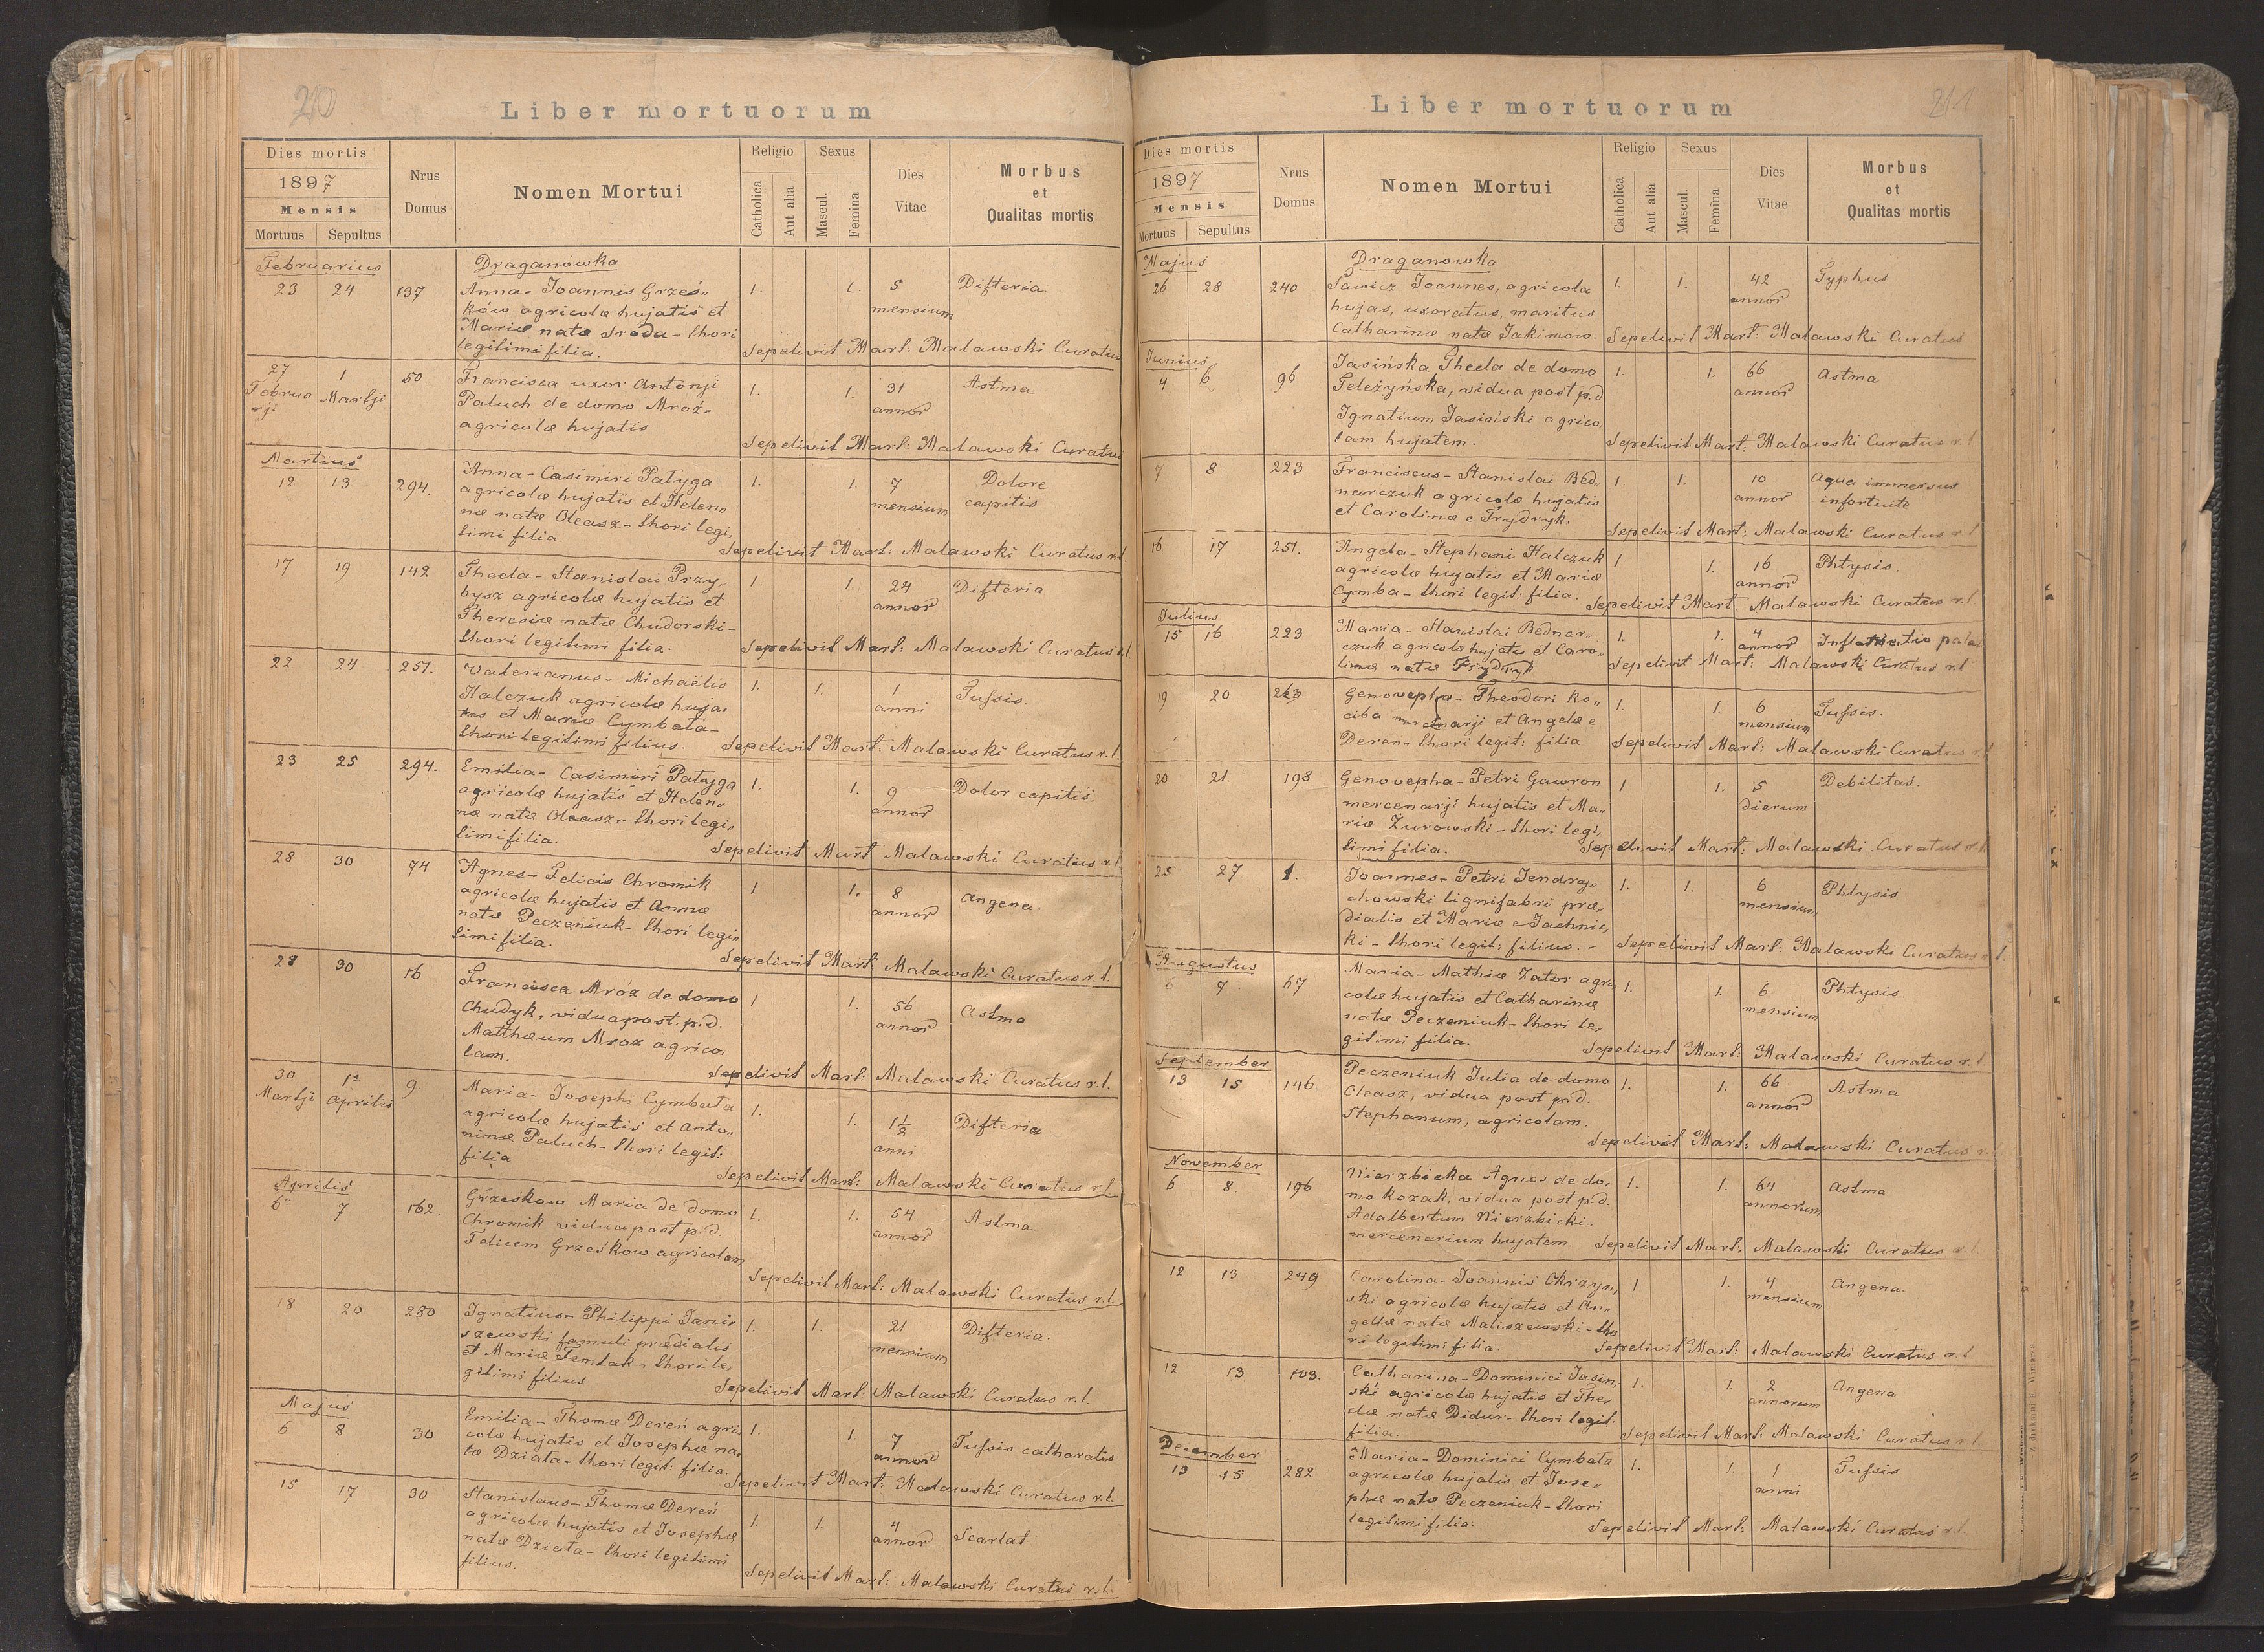 210
Liber mortuorum
Dies mortis
1897
Mensis
Mortuus Sepultus
Nrus
Domus
Nomen Mortui
Religio
Catholica
Aut alia
Sexus
Mascul.
Femina
Dies
Vitae
Morbus
et
Qualitas mortis
Februarius Draganówka
23 24 137 Anna - Joannis Grześ„ 1. 1. 5 Difteria
ków agricolæ hujatis et mensium
Mariæ natæ Sroda - thori
legitimi filia. Sepelivit Mart: Malawski Curatus
27 1 50 Francisca uxor Antonji 1. 1. 31 Astma
Februa Martji Paluch de domo Mróz - annor
rji agricolæ hujatis
Sepelivit Mart: Malawski Curatus
Martius
12 13 294. Anna - Casimiri Patyga 1. 1. 7 Dolore
agricolæ hujatis et Helen„ mensium capitis
næ natæ Oleasz - thori legi„
timi filia. Sepelivit Mart: Malawski Curatus r.l.
17 19 142 Thecla - Stanislai Przy„ 1. 1. 24 Difteria
bysz agricolæ hujatis et annor
Theresiæ natæ Chudorski -
thori legitimi filia. Sepelivit Mart: Malawski Curatus r.l.
22 24 251. Valerianus - Michaëlis 1. 1. 1 Tussis.
Halczuk agricolæ huja„ anni
tis et Mariæ Cymbata -
thori legitimi filius. Sepelivit Mart: Malawski Curatus r.l.
23 25 294. Emilia - Casimiri Patyga 1. 1. 9 Dolor capitis.
agricolæ hujatis et Helen„ annor
næ natæ Oleasz - thori legi„
timi filia. Sepelivit Mart Malawski Curatus r.l.
28 30 74 Agnes - Felicis Chromik 1 1. 8 Angena.
agricolæ hujatis et Annæ annor
natæ Peczeniuk - thori legi„
timi filia. Sepelivit Mart: Malawski Curatus r.l.
28 30 16 Francisca Mróz de domo 1 1. 56 Astma
Chudyk, vidua post. p.d. annor
Matthæum Mroz agrico„
lam. Sepelivit Mart: Malawski Curatus r.l.
30 1a 9 Maria - Josephi Cymbata 1. 1. 1½ Difteria
Martji Aprilis agricolæ hujatis et Anto„ anni
ninæ Paluch - thori legit:
filia Sepelivit Mart: Malawski Curatus r.l
Aprilis
6a 7 162. Grześkow Maria de domo 1. 1. 64 Astma.
Chromik vidua post p.d. annor
Felicem Grześkow agricolam
Sepelivit Mart: Malawski Curatus r.l.
18 20 280 Ignatius - Philippi Jani„ 1. 1. 21 Difteria.
szewski famuli prædialis mensium
et Mariæ Temtak - thori le„
gitimi filius Sepelivit Mart: Malawski Curatus r.l.
Majus
6 8 30 Emilia - Thomæ Dereń agri„ 1. 1. 7 Tussis catharatis
colæ hujatis et Josephæ na„ annor
tæ Dziata - thori legit: filia.
Sepelivit Mart: Malawski Curatus r.l.
15 17 30 Stanislaus - Thomæ Dereń 1. 1. 4 Scarlat
agricolæ hujatis et Josephæ annor
natæ Dziata - thori legitimi
filius. Sepelivit Mart: Malawski Curatus r.l.
211
Liber mortuorum
Dies mortis
1897
Mensis
Mortuus Sepultus
Nrus
Domus
Nomen Mortui
Religio
Catholica
Aut alia
Sexus
Mascul.
Femina
Dies
Vitae
Morbus
et
Qualitas mortis
Majus Draganowka
26 28 240 Sawicz Joannes, agricola 1. 1. 42 Typhus
hujas, uxoratus, maritus annor
Catharinæ natæ Jakimow. Sepelivit Mart: Malawski Curatus
Junius
4 6 96 Jasińska Thecla de domo 1. 1. 66 Astma
Teleżyńska, vidua post p.d annor
Ignatium Jasiński agrico„
lam hujatem. Sepelivit Mart: Malawski Curatus r.l
7 8 223 Franciscus - Stanislai Bed„ 1. 1. 10 Aqua immersus
narczuk agricolæ hujatis annor infortuite
et Carolinæ e Frydryk. Sepelivit Mart: Malawski Curatus r.l
16 17 251. Angela - Stephani Halczuk 1 1. 16 Phtysis.
agricolæ hujatis et Mariæ annor
Cymba - thori legit: filia. Sepelivit Mart. Malawski Curatus r.l.
Julius
15 16 223 Maria - Stanislai Bednar„ 1. 1. 4
czuk agricolæ hujatis et Caro„ annor
linæ natæ Frydryk Sepelivit Mart: Malawski Curatus r.l
19 20 263 Genovepha - Theodori Ko„ 1. 1. 6 Tussis.
ciba mercenarji et Angelæ e mensium
Deren - thori legit: filia Sepelivit Mart: Malawski Curatus r.l
20 21. 198 Genovepha - Petri Gawron 1 1. 5 Debilitas.
mercenarji hujatis et Ma„ dierum
riæ Zurowski - thori legi„
timi filia. Sepelivit Mart: Malawski Curatus r.l.
25 27 1. Joannes - Petri Jendraj„ 1. 1. 6 Phtysis
chowski lignifabri præ„ mensium
dialis et Mariæ e Jachnic„
ki - thori legit: filius. - Sepelivit Mart: Malawski Curatus r.l.
Augustus
6 7 67 Maria - Mathiæ Zator agri„ 1. 1. 6 Phtysis.
colæ hujatis et Catharinæ mensium
natæ Peczeniuk - thori le„
gitimi filia. Sepelivit Mart: Malawski Curatus r.l.
September
13 15 146 Peczeniuk Julia de domo 1. 1. 66 Astma
Oleasz, vidua post p.d. annor
Stephanum, agricolam.
Sepelivit Mart: Malawski Curatus r.l
November
6 8 196 Wierzbicka Agnes de do„ 1. 1. 64 Astma
mo Kozak, vidua post p.d. annorum
Adalbertum Wierzbicki -
mercenarium hujatem. Sepelivit Mart: Malawski Curatus r.l.
12 13 249 Carolina - Joannis Okrzyn„ 1 1. 4 Angena.
ski agricolæ hujatis et An„ mensium
gellæ natæ Maliszewski - tho
ri legitimi filia. Sepelivit Mart: Malawski Curatus r.l
12 13 103. Catharina - Dominici Jasin„ 1. 1. 2 Angena
ski agricolæ hujatis et The„ annorum
clæ natæ Didur - thori legit.
filia. Sepelivit Mart. Malawski Curatus r.l.
December
13 15 282 Maria - Dominici Cymbata 1. 1. 1 Tussis
agricolæ hujatis et Jose„ anni
phæ natæ Peczeniuk - thori
legitimi filia. Sepelivit Mart: Malawski Curatus r.l.